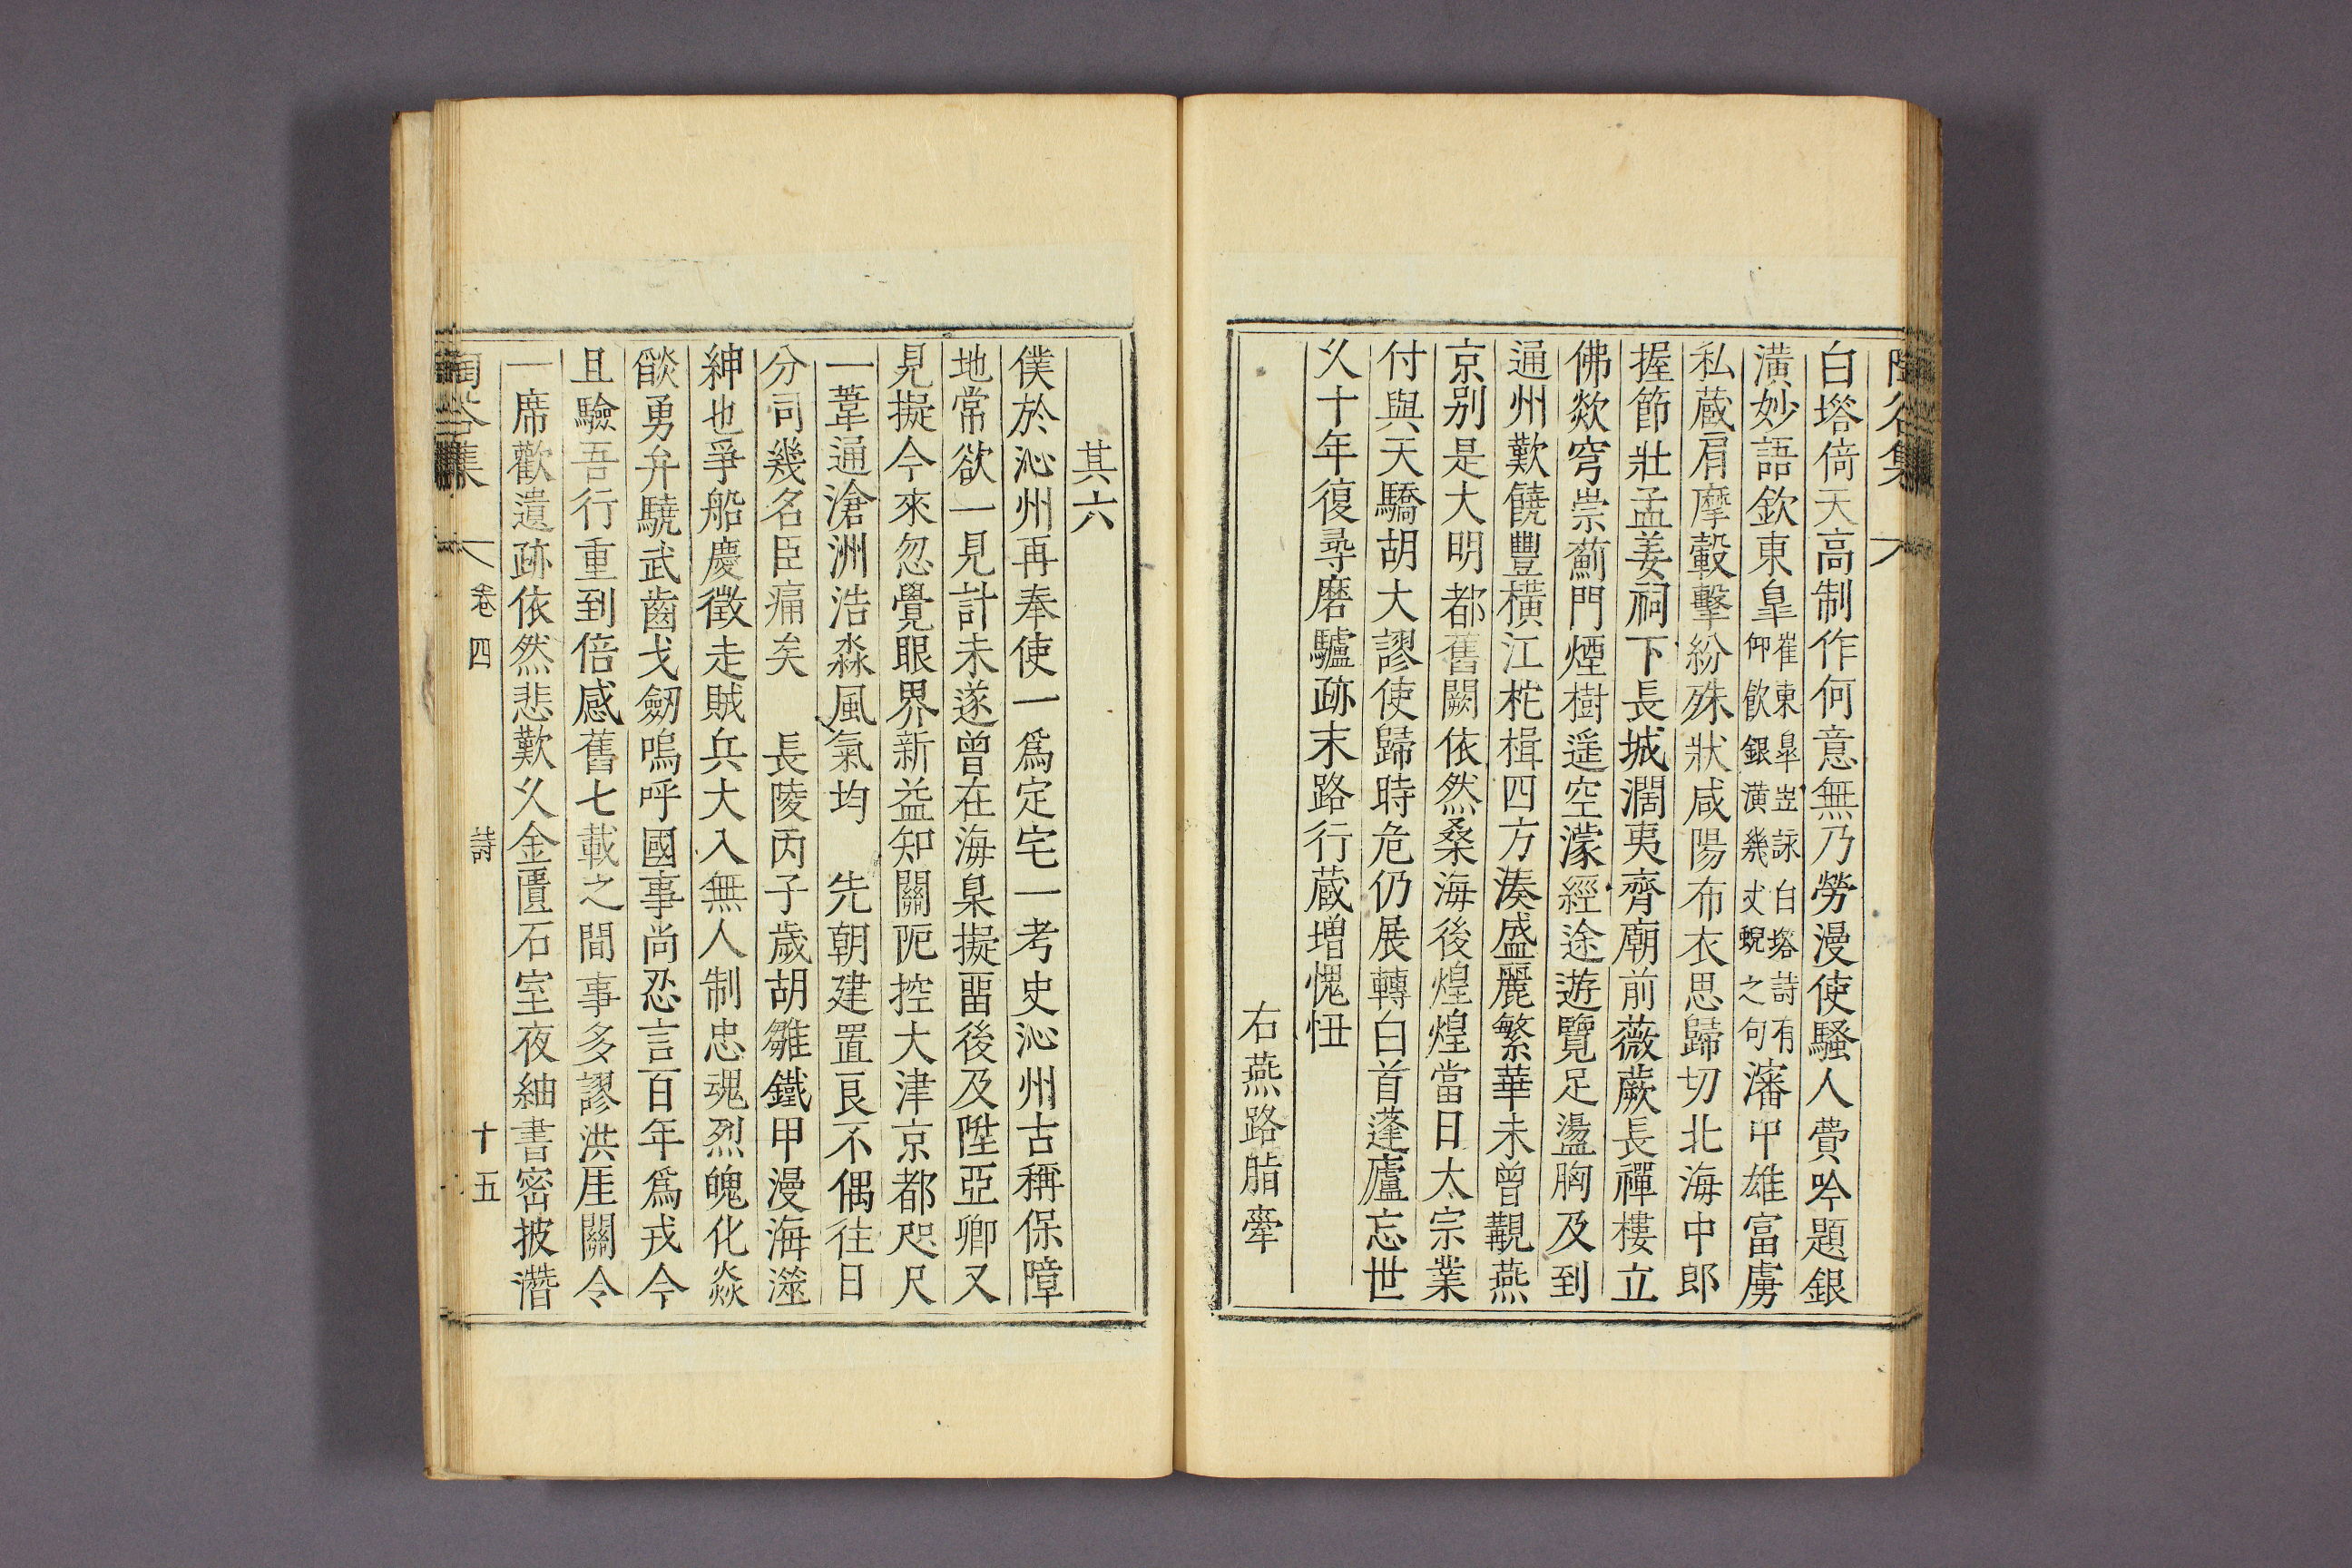 白塔倚天高制作何意無乃勞漫使騷人費吟題銀
潢妙語欽東皐崔東皐岦詠白塔詩有仰飮銀潢幾丈蜺之句瀋中雄富虜
私蔵肩摩轂擊紛殊狀咸陽布衣思歸切北海中郎
握節壯孟姜祠下長城濶夷齊廟前薇蕨長禪樓立
佛欻穹崇薊門煙樹遥空濛經途遊覽足盪胸及到
通州歎饒豐橫江柁楫四方湊盛麗繁華未曾覯燕
京别是大明都舊闕依然桑海後煌煌當日太宗業
付與天驕胡大謬使歸時危仍展轉白首蓬廬忘世
乆十年復尋磨驢跡末路行蔵增愧忸
右燕路脂舝
其六
僕於沁州再奉使一爲定宅一考史沁州古稱保障
地常欲一見計未遂曾在海臬擬畱後及陞亞卿又
見擬今來忽覺眼界新益知關阨控大津京都咫尺
一葦通滄洲浩淼風氣均 先朝建置良不偶往日
分司幾名臣痛矣 長陵丙子歲胡雛鐵甲漫海澨
紳也爭船慶徵走賊兵大入無人制忠魂烈魄化焱
燄勇弁驍武齒戈劒嗚呼國事尚忍言百年爲戎今
且驗吾行重到倍感舊七載之間事多謬洪厓關令
一席歡遺跡依然悲歎乆金匱石室夜紬書密披潛
陶谷集 卷四 詩 十五